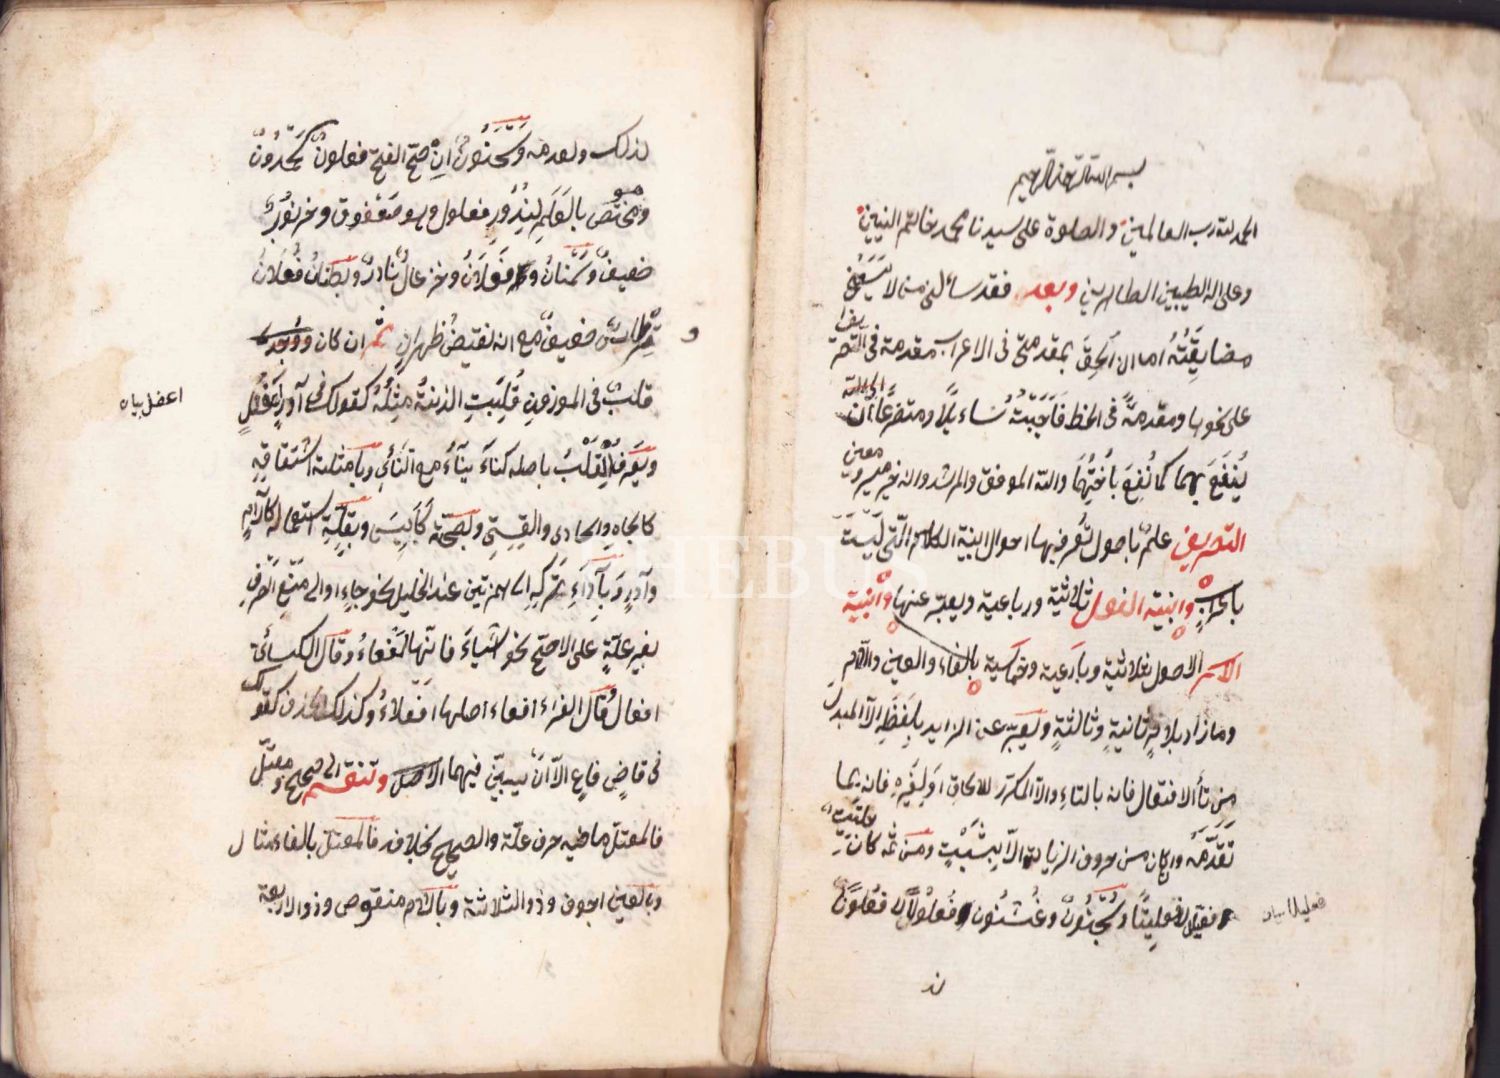 بسم الله الرحمن الرحيم
الحمد لله رب العالمين والصلوة على سيدنا محمد خاتم النبيين
وعلى اله الطيبين الطاهرين وبعد فقد سألني من لا يَسَعُني
مضايقَتُهُ اما ان اُلحِقَ بمقدمتى فى الاعراب مقدمة فى التصريف
على نحوها ومقدمةً فى الخط فَاَجَبْتُهُ سَاءيِلًا متضرعًا الى الله اَن
يُنفَعَ بهما كما نُفِعَ بأختِهِمَا والله الموفق والمرشد وانه خير ميسر ومعين
التصريف علم باصول تُعرف بها احوال ابنية الكلام الّتى لَيْسَتْ
باعرابٍ وابنية الفعل ثلاثية ورباعية ويعبّر عنها وابنية
الاسم الاصول ثلاثية ورباعية وخماسية بالفاء والعين واللام
وما زاد بلامٍ ثانيةٍ وثالثةٍ ويعبّر عن الزايد بلفظِهِ الّا المبدل
مِن تأ الافتعال فانه بالتاءِ والّا المكرّر للالحاقِ اوْ لِغَيْرِهِ فانه بما
تقدّمَهُ وان كان من حروف الزيادة الّا بِثَبْتٍ ومن ثمه كان حِلتيت
فِعْلِيلًا لا فِعليتًا وسُحْنُونٌ وعُثْنُون فُعْلُولًا لا فُعْلُونًا
فعليلا بيان
لذ
لذلك ولعدمه وسَحْنُونٌ اِنْ صحّ الفتح فَفَعلونٌ كحَمْدُونٌ
وهو مختصّ بالعَلَمِ لِنُدُورِ فَعلول وهو صَعْفوق وخرنوبٌ
ضعيفٌ وسَمْنانُ فَعْلَانُ وخزعالٌ نادرٌ وبُطنانٌ فُعْلانٌ
وقُرطاسٌ ضعيفٌ مع انه نقيضُ ظهرانٍ ثم ان كان
قلبٌ فى الموزونِ قُلِبَتِ الزنةُ مِثْلُهُ كقولك فى آدُرٍ اَعْفُلٍ
اعفل بيان
ويُعرفُ القَلْبُ باصله كناءَ ينآءُ مع النَأْيِ وبامثلة اشتقاقِهِ
كالجاهِ والحادى والقِسِيِّ وبصحّته كَاَيِسَ وبقلّةِ استعماله كآرَامٍ
وآدرٍ وبِأدَاءِ تركِهِ الى همزتين عند الخليل نحو جاءٍ او الى مَنْعِ الصرفِ
بغير علّةٍ على الاصحّ نحو اشياءَ فانّها لَفْعاءُ وقال الكسائىّ
افعال وقال الفراء افعاء اصلها اَفْعِلاءُ وكذلك الحذف كقولك
فى قاضٍ فاعٍ الّا اَنْ يبيّن فيهما الاصل وتنقسم الى صحيح ومعتلّ
فالمعتلّ ما فيه حرف علّة والصحيح بخلافه فالمعتلّ بالفاء مثال
وبالعين اجوف وذو الثلاثة وباللام منقوص وذو الاربعة
THEBUS